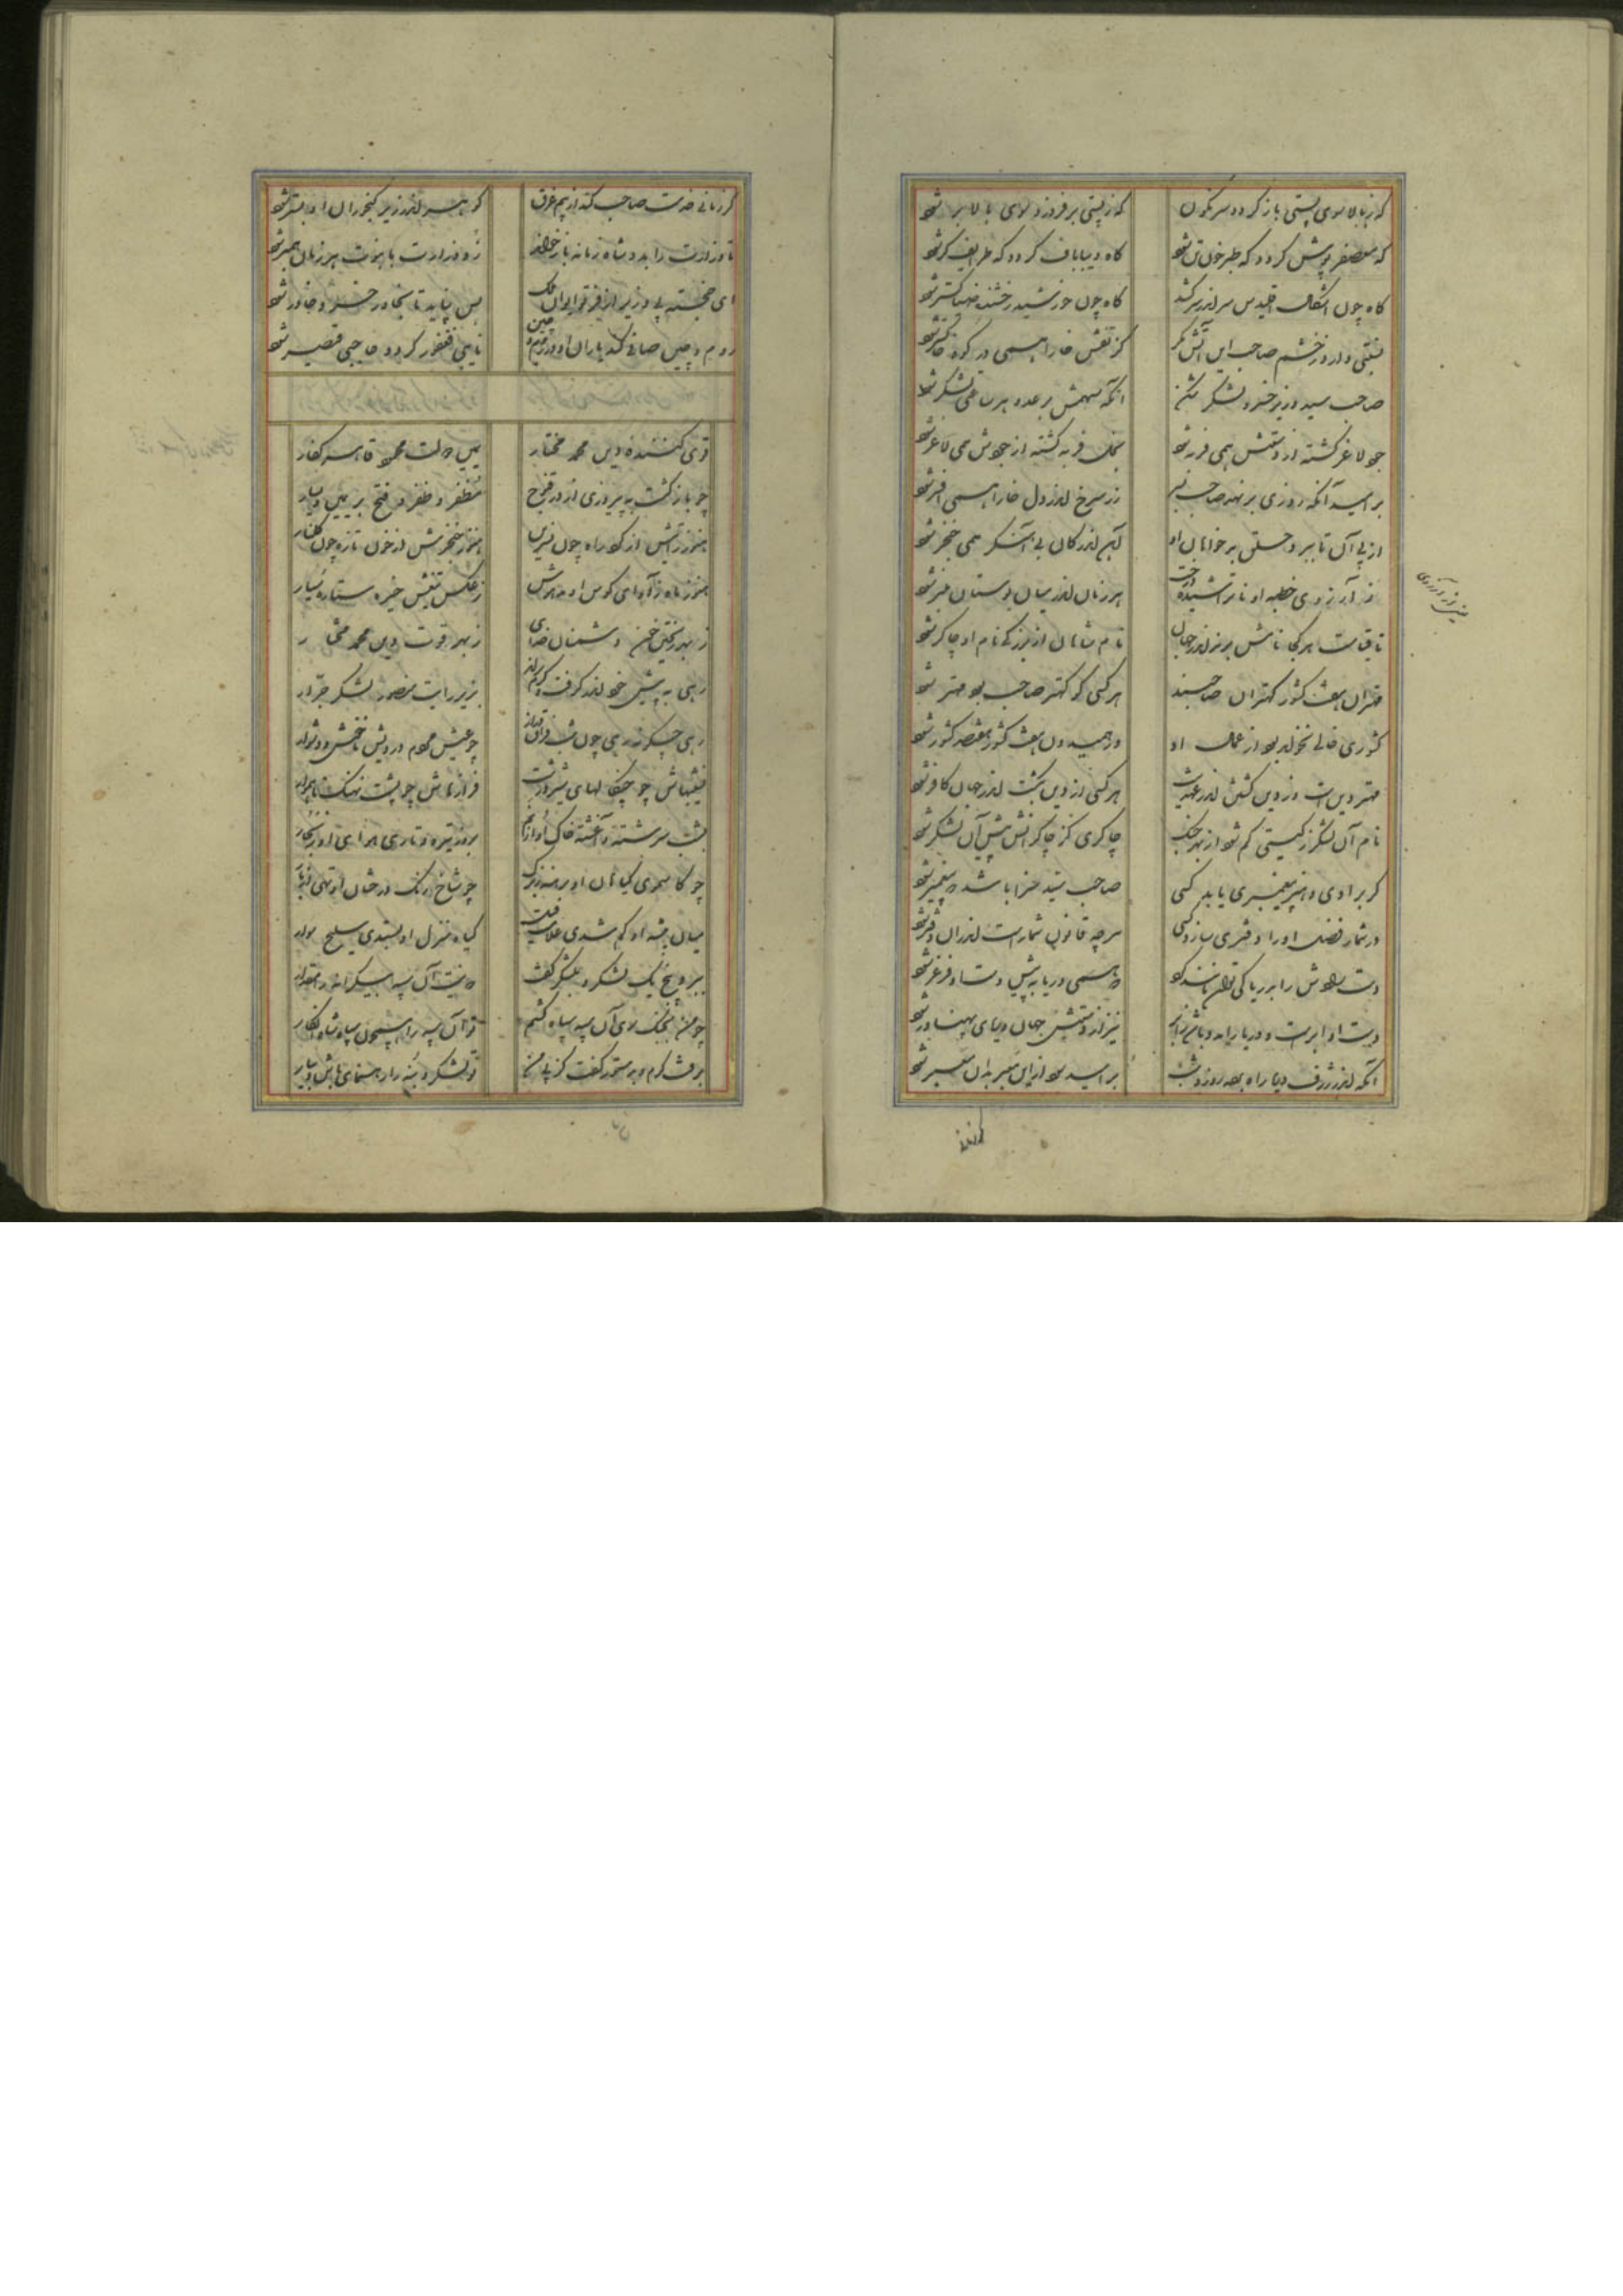 که ز بالا سوی پستی باز گردد سرنگون
که ز پستی بر فروزد سوی بالا بر شود
که معصفر پوش گردد که طبر خون تن شود
گاه دیبا باف گردد که طرایف گر شود
گاه چون اشکال اقلیدس سر اندر سر کشد
گاه چون خورشید رخشنده ضیا گستر شود
نسبتی دارد ز خشم صاحب این آتش مگر
کز تفش خارا همی در کوه خاکستر شود
صاحب سید وزیر خسرو لشکر شکن
آنکه سهمش بر عدو هر ساعتی لشکر شود
جود لاغر گشته از دستش همی فربه شود
بخل فربه گشته از جودش همی لاغر شود
بر امید آنکه روزی بر نهد صاحب بسر
زر سرخ اندر دل خارا همی افسر شود
از پی آن تا ببرد حلق بدخواهان او
آهن اندر کان بی آهنگر همی خنجر شود
ز آرزوی خطبه او ناتراشیده درخت
هر زمان اندر میان بوستان منبر شود
تا قیامت هر کجا نامش برند اندر جهان
نام شاهان از بزرگی نام او چاکر شود
مهتران هفت کشور کهتران صاحبند
هر کسی کو کهتر صاحب بود مهتر شود
کشوری خالی نخواهد بود از عمال او
ور همیدون هفت کشور هفتصد کشور شود
مهر دینست و ز دین گشتن اندر مهر اوست
هر کسی از دین بگشت اندر جهان کافر شود
نام آن لشکر ز گیتی گم شود از بهر جنگ
چاکری کز چاکرانش پیش آن لشکر شود
گر برادی و هنر پیغمبری یابد کسی
صاحب سید سزا باشد که پیغمبر شود
در شمار فضل او را دفتری سازد کسی
هر چه قانون شمارست اندر آن دفتر شود
دست رادش را به دریا کی توان مانند کرد
که همی دریا به پیش دست او فرغر شود
دست او ابرست و دریا را مدد باشد ز ابر
نیز از دستش جهان دریای پهناور شود
آنکه اندر ژرف دریا راه برد روز و شب
بر امید سود از این معبر بدان معبر شود
گر زمانی خدمت صاحب کند از بیم غرق
گوهر اندر زیر گنجوران او بستر شود
تا وزارت را بدو شاه زمانه باز خواند
زو وزارت با نبوت هر زمان همبر شود
ای خجسته پی وزیر از فر تو ایوان ملک
بس نپاید تا بخاور خسرو خاور شود
روم و چین صافی کند یاران او در روم و چین
نایبی فغفور گردد حاجبی قیصر شود
قوی کننده دین محمد مختار
یمین دولت محمود قاهر کفار
چو بازگشت به پیروزی از در قنوج
مظفر و ظفر و فتح بر یمین و یسار
هنوز رایش از گرد راه چون نسرین
هنوز خنجرش از خون تازه چون گلنار
هنوز ماه ز آوای کوس او مدهوش
ز عکس تیغش خیره ستاره سیار
ز بهر ریختن خون دشمنان خدای
ز بهر قوت دین محمد مختار
رهی به پیش خود اندر گرفت و گرم براند
بزیر رایت منصور لشکر جرار
رهی چگونه رهی چون شب فراق دراز
چو عیش مردم درویش ناخوش و دشوار
نشیبهاش چو چنگالهای شیر درشت
فرازهاش چو پشت نهنگ ناهموار
بروز تیره و تاری هوای او ز بخار
چو کاسموی گیاهان او برهنه ز برگ
چو شاخ رنگ درختان او تهی از بار
میان بیشه او گم شدی علامت
گیاه منزل او بستدی سلیح سوار
بره ز پیل لشکر و بلشکر گفت
که نیست آن سپه بیکرانه را مقدار
چو من بجنگ سوی آن سپه سپاه کشم
تو آن سپه را
برفت گرم و به دستور گفت کز پی من
تو لشکر و بنه را رهنمای باش و بیار